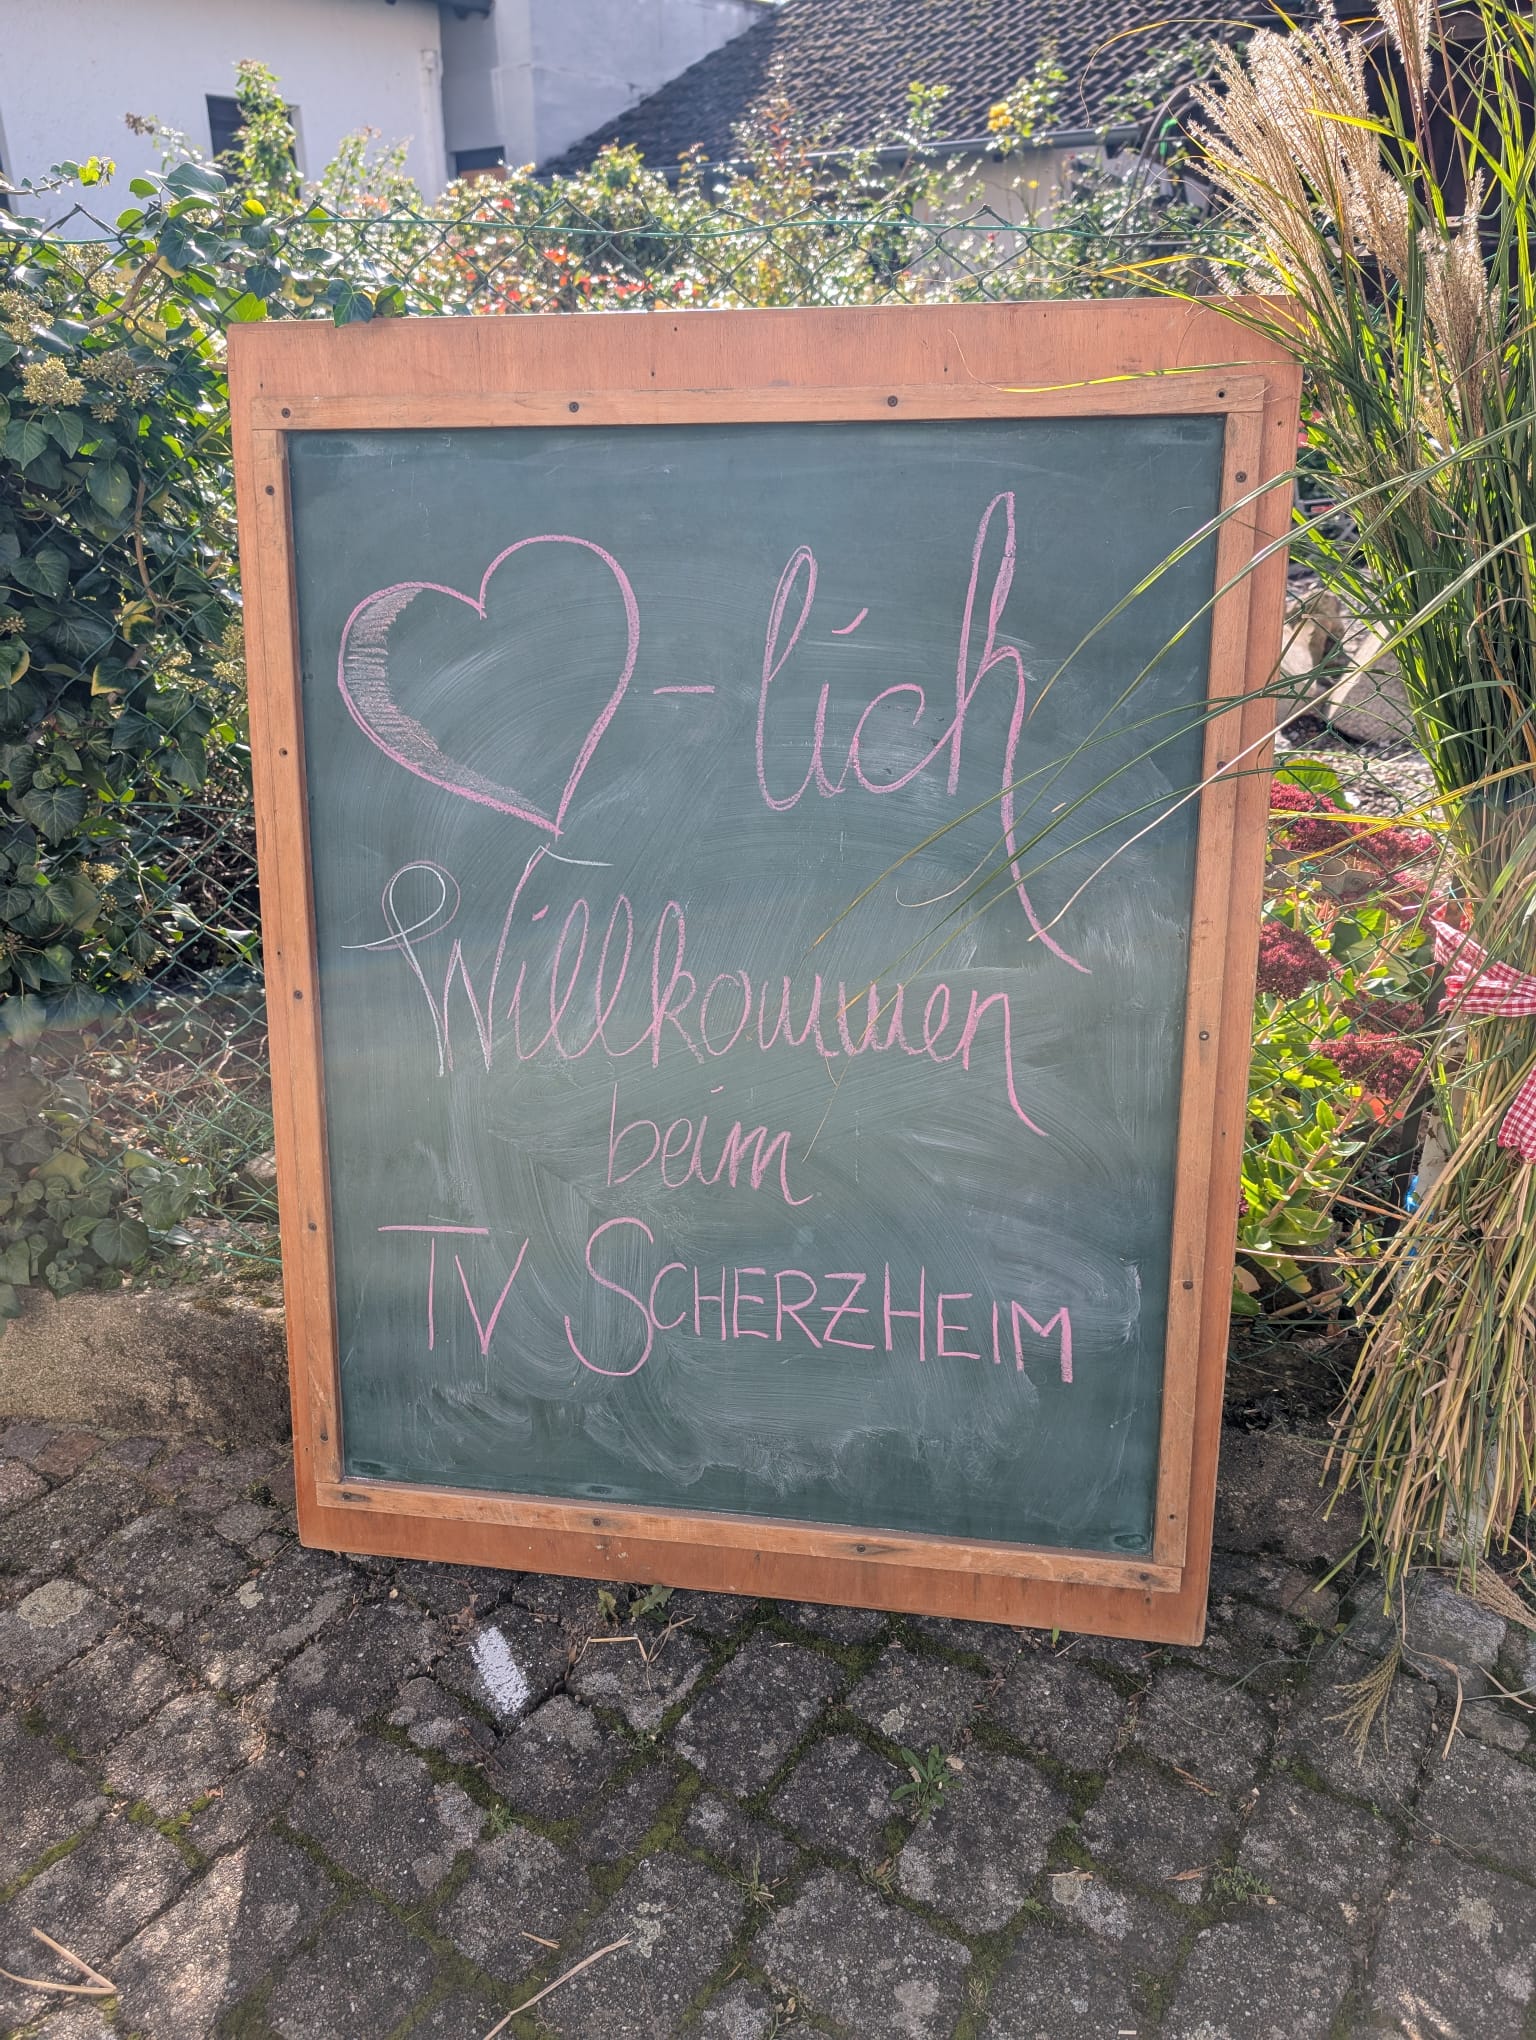 ♡-lich
Willkommen
beim
TV SCHERZHEIM